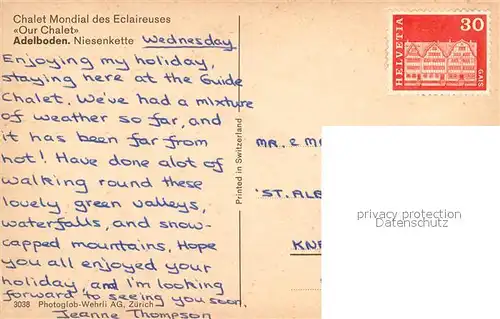 Chalet Mondial des Eclaireuses
«Our Chalet»
Adelboden. Niesenkette
Wednesday
Enjoying my holiday,
staying here at the Guide
Chalet. We've had a mixture
of weather so far, and
it has been far from
hot! Have done alot of
walking round these
lovely green valleys,
waterfalls, and snow-
capped mountains. Hope
you all enjoyed your
holiday, and I'm looking
forward to seeing you soon.
Jeanne Thompson
3038 Photoglob-Wehrli AG, Zürich
Printed in Switzerland
HELVETIA
30
GAIS
MR. & M
'ST. ALB
KN
privacy protection
Datenschutz